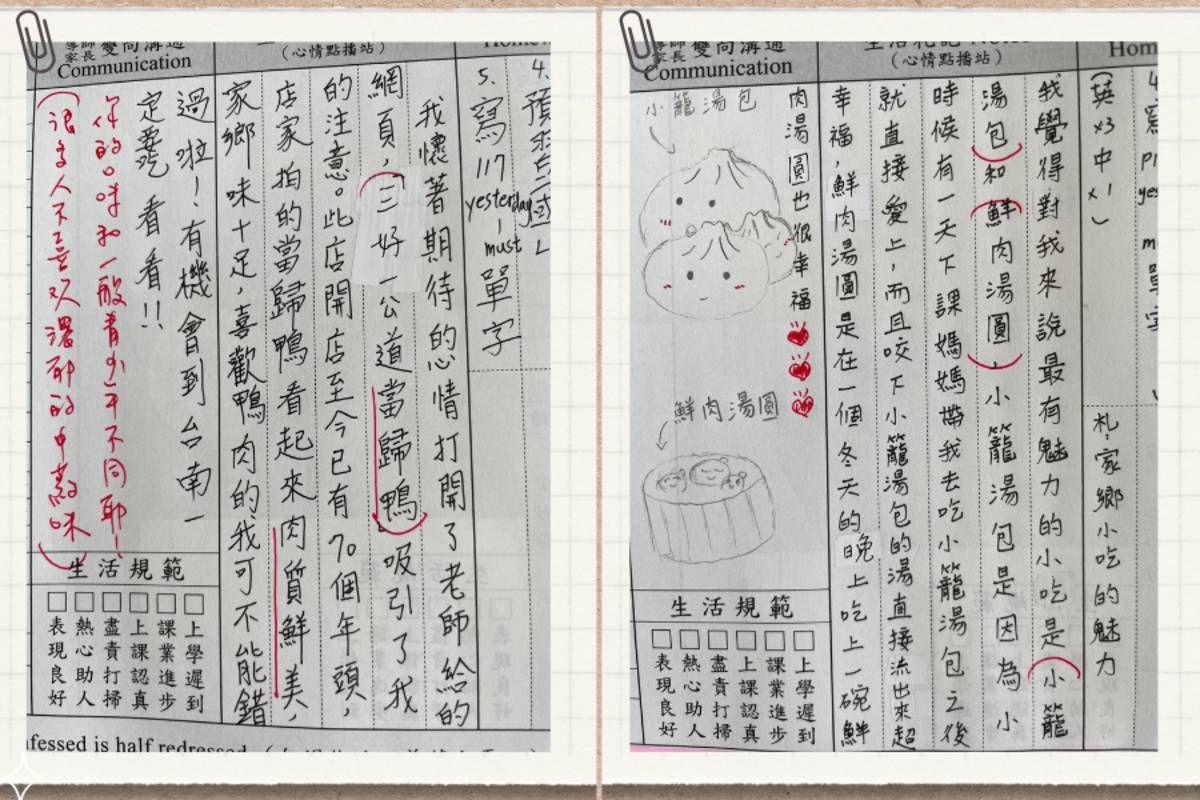 導師
家長 雙向溝通
Communication
(心情點播站)
4.
5.寫117
yesterday
|
must
單字
我懷著期待的心情打開了老師給的
網頁，「三好一公道當歸鴨」吸引了我
的注意。此店開店至今已有70個年頭，
店家拍的當歸鴨看起來肉質鮮美，
家鄉味十足，喜歡鴨肉的我可不能錯
過啦！有機會到台南一
定要看看!!
你的口味和一般青少年不同耶！
(很多人不喜欢濃郁的中藥味)
生活規範
上學遲到
課業進步
上課認真
盡責打掃
熱心助人
表現良好
nfessed is half redressed.
導師
家長 雙向溝通
Communication
生活札記 Notes
(心情點播站)
Hom
4.
(英x3中x1)
札:家鄉小吃的魅力
我覺得對我來說最有魅力的小吃是小籠
湯包和鮮肉湯圓，小籠湯包是因為小
時候有一天下課媽媽帶我去吃小籠湯包之後
就直接愛上，而且咬下小籠湯包的湯直接流出來超
幸福，鮮肉湯圓是在一個冬天的晚上吃上一碗鮮
肉湯圓也很幸福
小籠湯包
鮮肉湯圓
生活規範
上學遲到
課業進步
上課認真
盡責打掃
熱心助人
表現良好